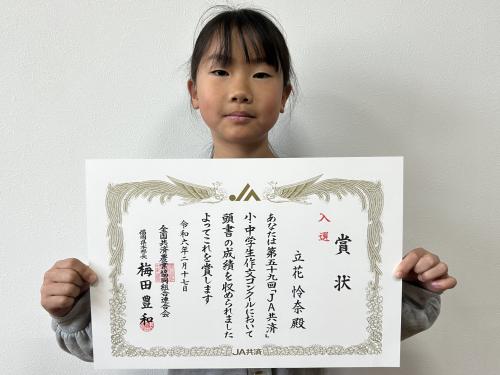 JA
賞状
入選
立花 怜奈 殿
あなたは第五十九回「JA共済」
小・中学生作文コンクールにおいて
頭書の成績を収められました
よってこれを賞します
令和六年二月十七日
全国共済農業協同組合連合会
福岡県本部長
梅田 豊和
JA共済